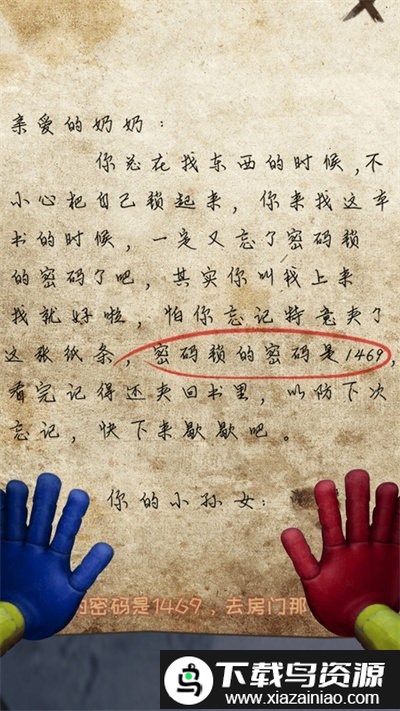 亲爱的奶奶：
你总在找东西的时候，不
小心把自己锁起来，你来找这本
书的时候，一定又忘了密码锁
的密码了吧，其实你叫我上来
找就好啦，怕你忘记特意夹了
这张纸条，密码锁的密码是1469，
看完记得还夹回书里，以防下次
忘记，快下来歇歇吧。
你的小孙女：
的密码是1469，去房门那
下载鸟资源
www.xiazainiao.com